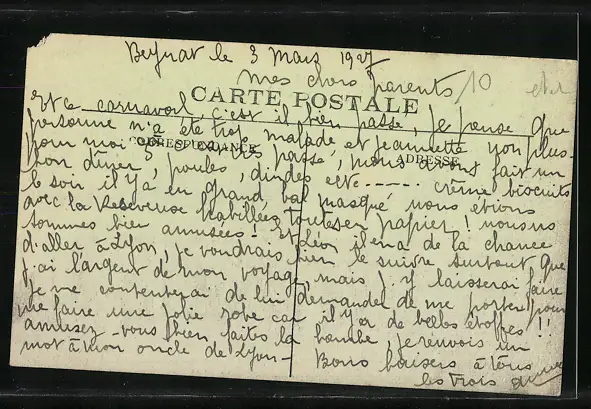 Beynat le 3 Mars 1927
mes chers parents
10
CARTE POSTALE
Et ce carnaval, c'est il bien passé, je pense que
personne n'a été trop malade et jeannette non plus
CORRESPONDANCE
ADRESSE
pour moi passé, nous avons fait un
bon diner, poules, dindes ect...... crême biscuits
le soir il y a eu grand bal masqué nous étions
avec la Receveuse habillées toutes en papier! nous nous
sommes bien amusées! et Léon il en a de la chance
d'aller à Lyon, je voudrais bien le suivre surtout que
j'ai l'argent de mon voyage, mais j'y laisserai faire
je me contenterai de lui demander de me porter pour
me faire une jolie robe car il y a de belles étoffes!!
amusez-vous bien faites la bombe, je renvois un
mot à mon oncle de Lyon— Bons baisers à tous
les trois